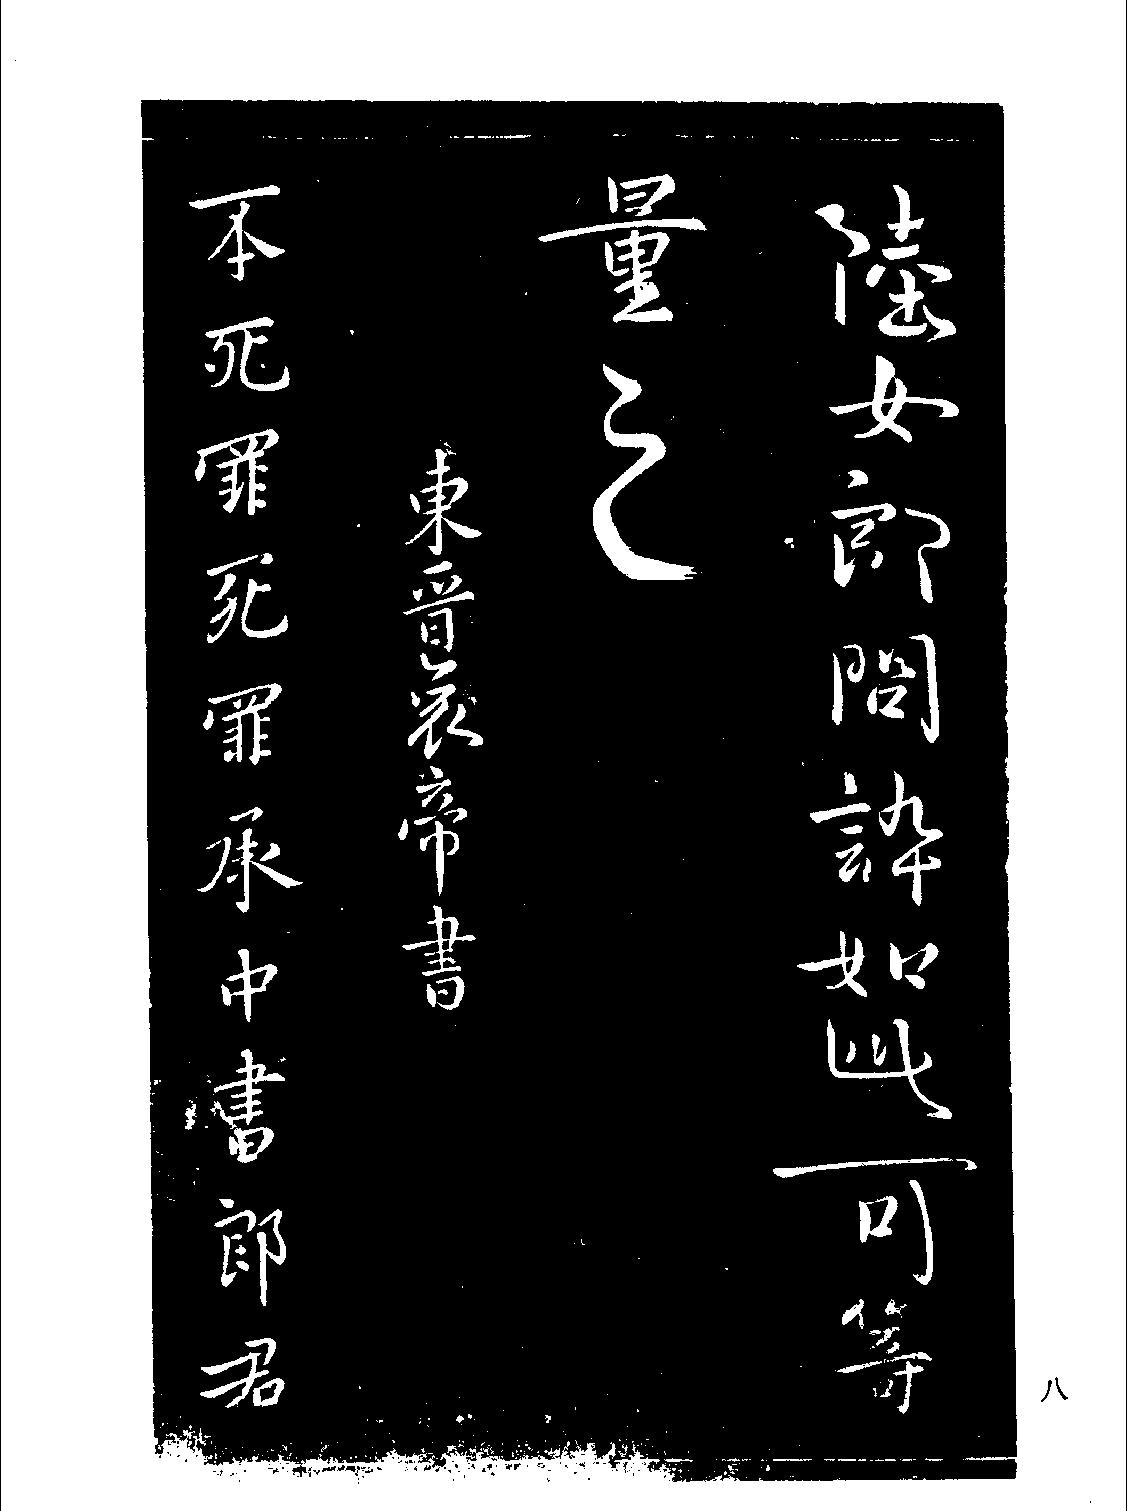 陸女郎問誶如此可籌
量之
東晉哀帝書
丕死罪死罪承中書郎君
八